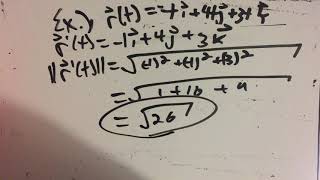 Ex.) r⃗(t) = -t i⃗ + 4t j⃗ + 3t k⃗
r⃗'(t) = -1 i⃗ + 4 j⃗ + 3 k⃗
||r⃗'(t)|| = √((-1)² + (4)² + (3)²)
= √(1 + 16 + 9)
= √26